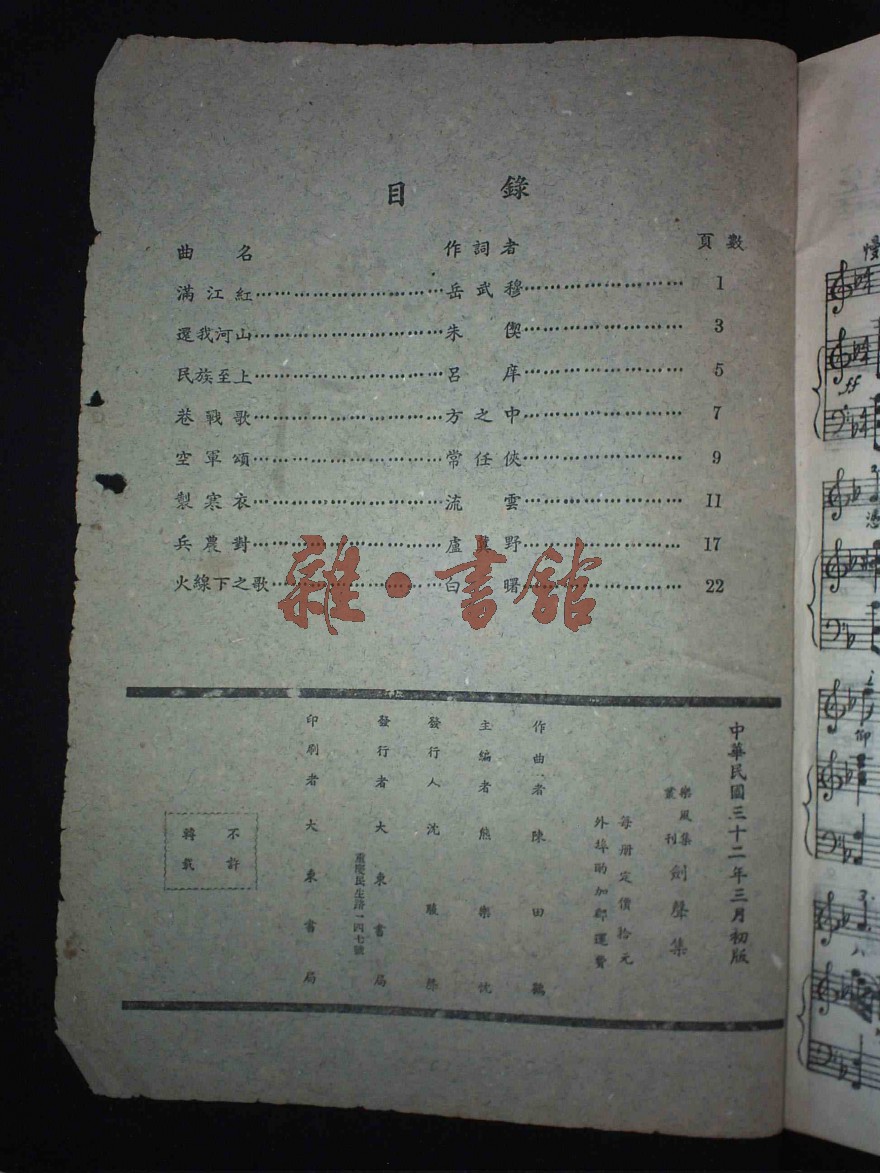 目錄
曲名 作詞者 頁數
滿江紅……………………………岳武穆……………………………1
還我河山……………………………朱偰……………………………3
民族至上……………………………呂庠……………………………5
巷戰歌……………………………方之中……………………………7
空軍頌……………………………常任俠……………………………9
製寒衣……………………………流雲……………………………11
兵農對……………………………盧冀野……………………………17
火線下之歌……………………………白曙……………………………22
雜·書館
中華民國三十二年三月初版
樂風集叢刊 劍聲集
每册定價拾元
外埠酌加郵運費
作曲者 陳田鶴
主編者 熊樂忱
發行人 沈駿
發行者 大東書局
重慶民生路一四七號
印刷者 大東書局
不許
轉載
慢
ff
憑
仰
八